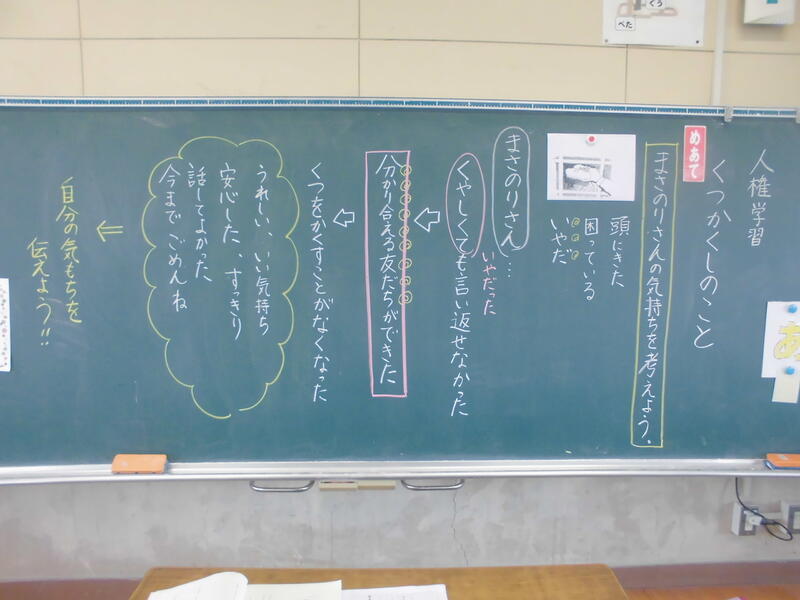 人権学習
くつかくしのこと
めあて
まさのりさんの気持ちを考えよう。
頭にきた
困っている
いやだ
まさのりさん…
いやだった
くやしくても言い返せなかった
分かり合える友だちができた
くつをかくすことがなくなった
うれしい、いい気持ち
安心した、すっきり
話してよかった
今までごめんね
自分の気もちを
伝えよう!!
くろ
べた
あ